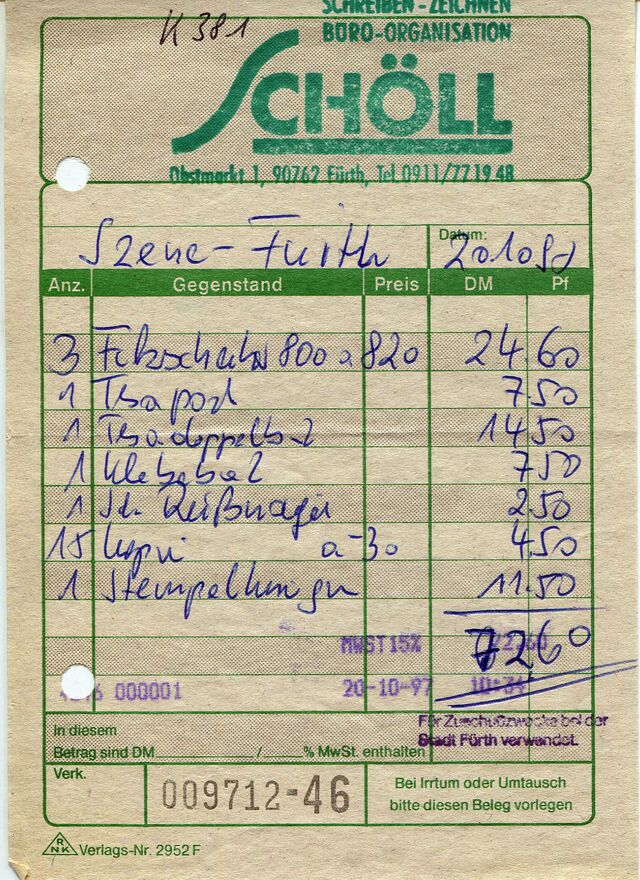 K 381
SCHREIBEN-ZEICHNEN
BÜRO-ORGANISATION
SCHÖLL
Obstmarkt 1, 90762 Fürth, Tel. 0911/77 19 48
Szene-Fürth
Datum:
Anz. Gegenstand Preis DM Pf
3 800 a 820 24.60
1 7.50
1 14.50
1 7.50
1 2.50
15 a -30 4.50
1 11.50
7260
MWST15%
000001 20-10-97 10:34
Für Zuschußzwecke bei der
Stadt Fürth verwendet.
In diesem
Betrag sind DM / % MwSt. enthalten
Verk.
009712-46
Bei Irrtum oder Umtausch
bitte diesen Beleg vorlegen
RNK Verlags-Nr. 2952 F